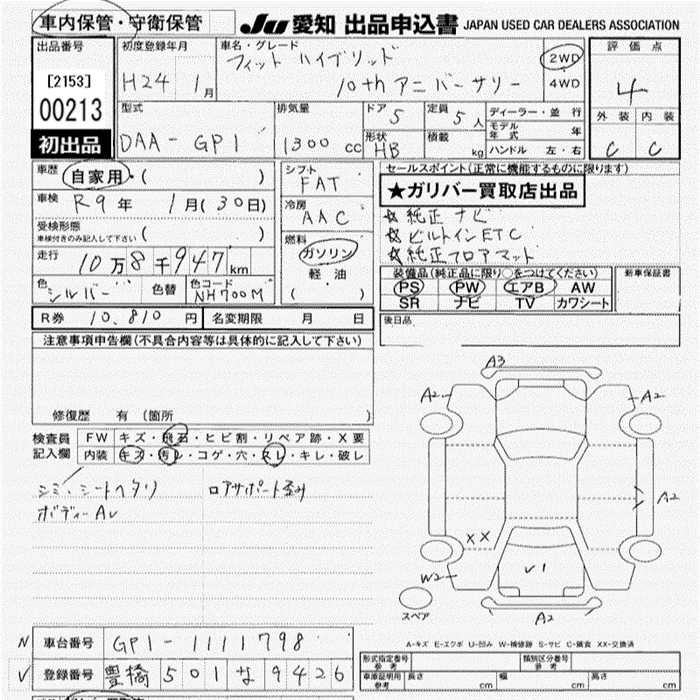 車内保管・守衛保管
JU 愛知 出品申込書 JAPAN USED CAR DEALERS ASSOCIATION
出品番号
[2153]
00213
初出品
初度登録年月
H24 1月
車名・グレード
フィット ハイブリッド
10th アニバーサリー
2WD
4WD
評価点
4
外装 内装
C C
型式
DAA-GP1
排気量
1300 cc
ドア 5
形状 HB
定員 5人
積載 kg
ディーラー・並行
モデル年式 年
ハンドル 左・右
車歴 自家用・( )
車検 R9年 1月(30日)
受検形態
車検付きのみ記入して下さい ( )
走行 10万8千947km
色 シルバー 色替 色コード NH700M
シフト FAT
冷房 AAC
燃料
ガソリン
軽・油
( )
セールスポイント(正常に機能するものに限ります)
★ガリバー買取店出品
☆純正ナビ
☆ビルトインETC
☆純正フロアマット
装備品(純正品に限り○をつけてください)
PS PW エアB AW
SR ナビ TV カワシート
新車保証書
R券 10,810円 名変期限 月 日
後日品
注意事項申告欄(不具合内容等は具体的に記入して下さい)
修復歴 有(箇所 )
検査員記入欄
FW キズ・飛石・ヒビ割・リペア跡・X要
内装 キズ・汚レ・コゲ・穴・スレ・キレ・破レ
シミ・シートヘタリ ロアサポート歪み
ボディーAU
A3
A2 A2
A2
XX
W2 V1
A2
スペア
A-キズ E-エクボ U-凹み W-補修跡 S-サビ C-腐食 XX-交換済
N 車台番号 GP1-1111798
V 登録番号 豊橋 501 な 9426
形式指定番号 参考 類別区分番号 参考
車庫証明用 参考 長さ cm 幅 cm 高さ cm